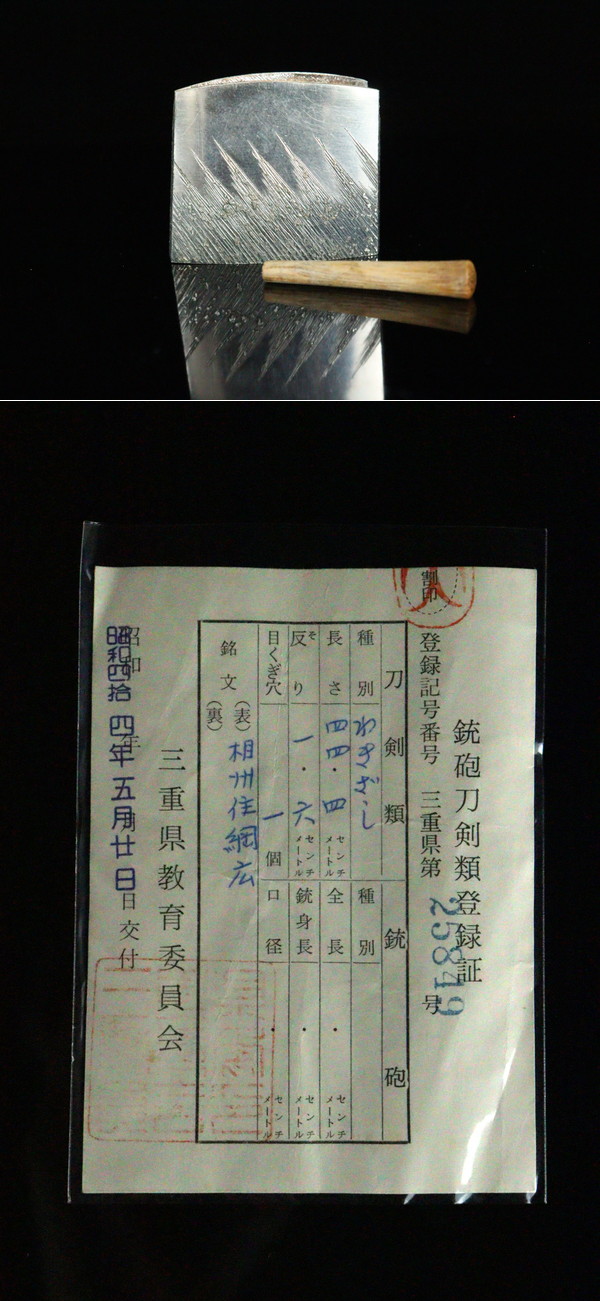 割印
銃砲刀剣類登録証
登録記号番号 三重県第 25849 号
刀剣類
種別 わきざし
長さ 四四・四 センチメートル
反り そ 一・六 センチメートル
目くぎ穴 一個
銘文 (表) 相州住綱広
(裏)
銃砲
種別
全長 ・ センチメートル
銃身長 ・ センチメートル
口径 ・ センチメートル
三重県教育委員会
昭和 年 月 日交付
昭和四拾四年五月廿日